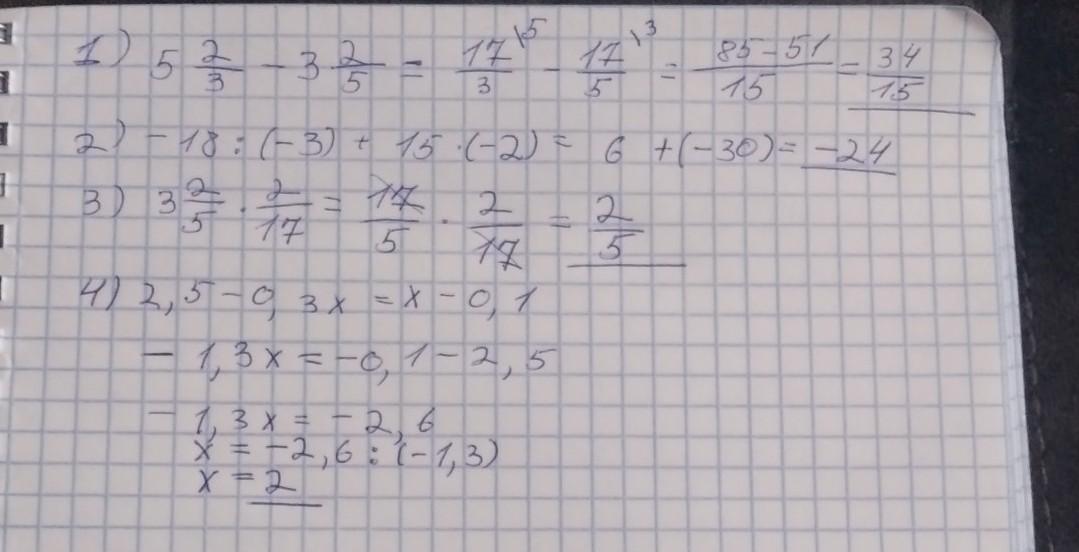 1) 5 2/3 - 3 2/5 = 17\5/3 - 17\3/5 = 85-51/15 = 34/15
2) -18 : (-3) + 15 · (-2) = 6 + (-30) = -24
3) 3 2/5 · 2/17 = 17/5 · 2/17 = 2/5
4) 2,5 - 0,3x = x - 0,1
- 1,3x = -0,1 - 2,5
- 1,3x = -2,6
x = -2,6 : (-1,3)
x = 2